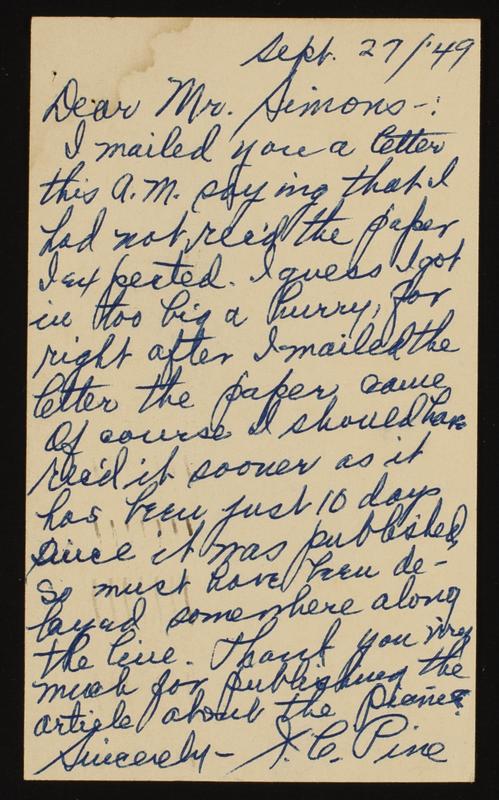 Sept. 27/'49
Dear Mr. Simons-:
I mailed you a letter
this A.M. saying that I
had not rec'd the paper
I expected. I guess I got
in too big a hurry, for
right after I mailed the
letter the paper came
Of course I should have
rec'd it sooner as it
has been just 10 days
since it was published,
so must have been de-
layed somewhere along
the line. Thank you very
much for publishing the
article about the
Sincerely- C. Pine